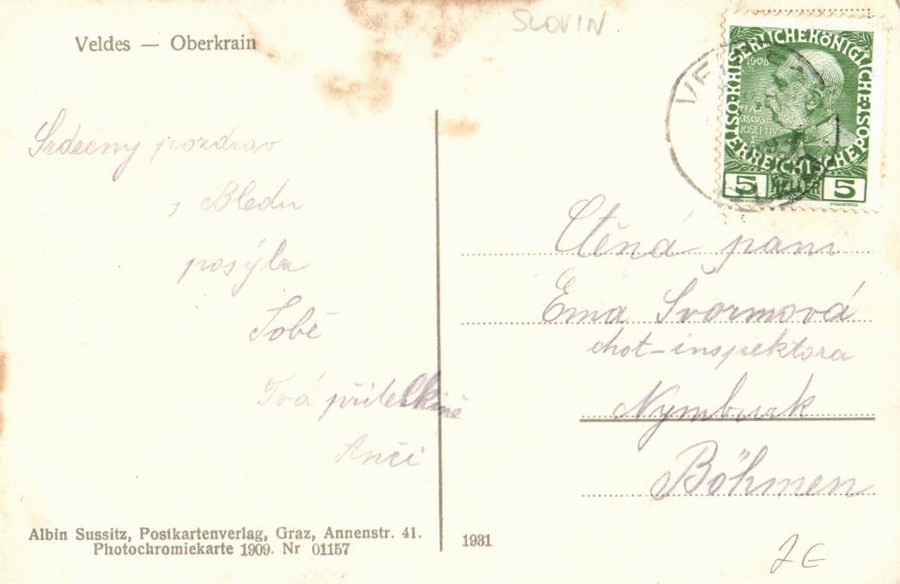 SLOVIN.
Veldes — Oberkrain
Srdečný pozdrav
s Bledu
posýlá
Tobě
Tvá přítelkině
Anči
ÖSTO·KAISERLICHE·KÖNIGLICHE·POST
1908
ÖSTERREICHISCHE
5 HELLER 5
VE
Ctěná paní
Ema Švormová
chot-inspektora
Nymburk
Böhmen
Albin Sussitz, Postkartenverlag, Graz, Annenstr. 41.
Photochromiekarte 1909. Nr 01157
1931
2€